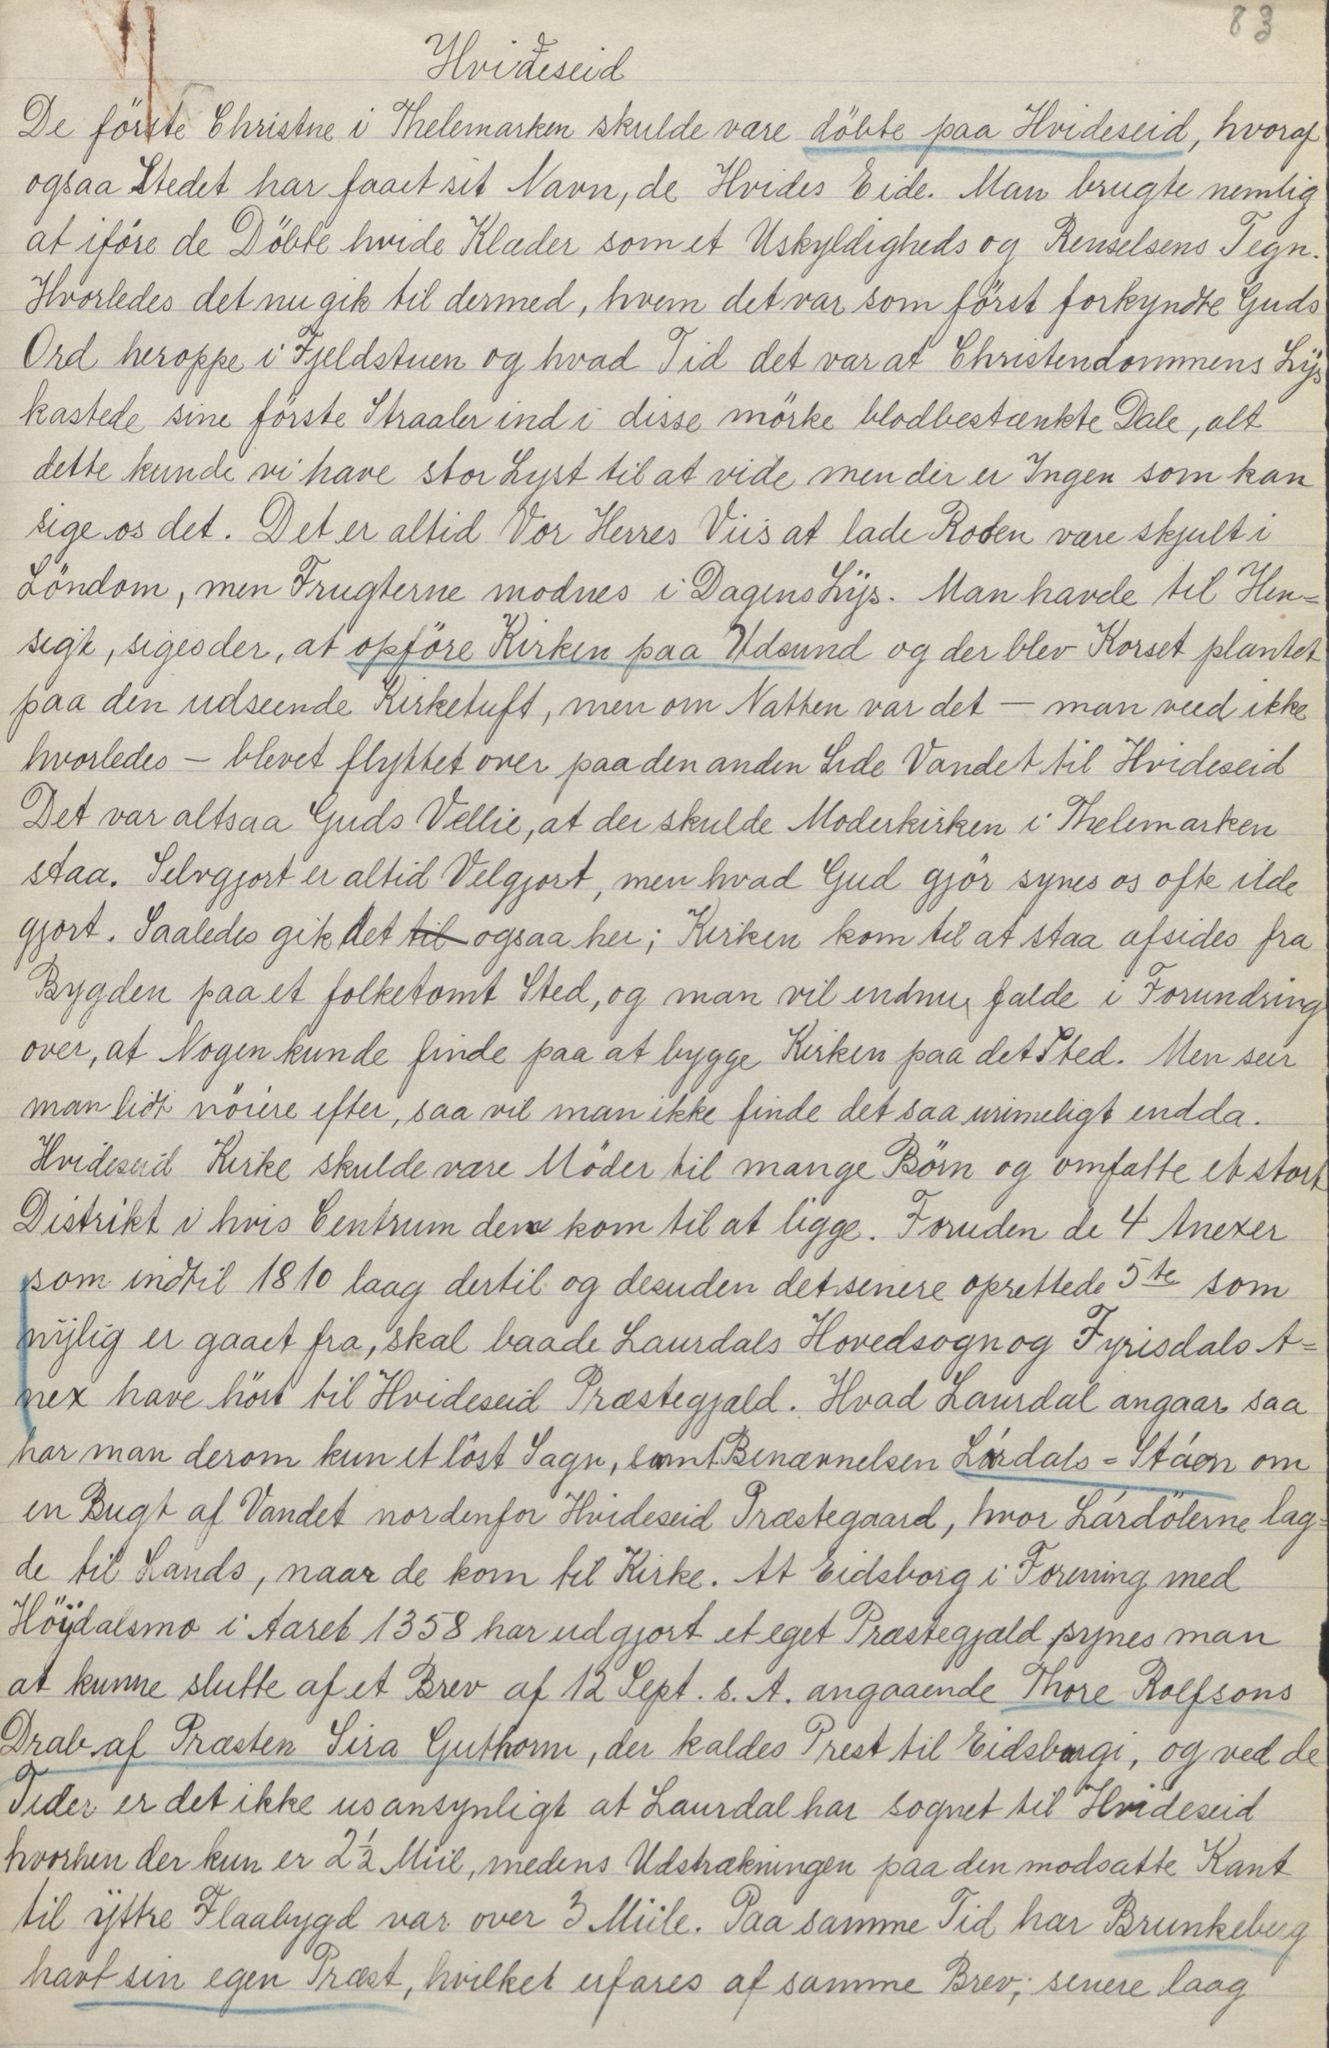 83
Hvideseid
De förste Christne i Thelemarken skulde være döbte paa Hvideseid, hvoraf
ogsaa Stedet har faaet sit Navn, de Hvides Eide. Man brugte nemlig
at iföre de Döbte hvide Klæder som et Uskyldigheds og Renselsens Tegn.
Hvorledes det nu gik til dermed, hvem det var som först forkyndte Guds
Ord heroppe i Fjeldstuen og hvad Tid det var at Christendommens Lÿs
kastede sine förste Straaler ind i disse mörke blodbestænkte Dale, alt
dette kunde vi have stor Lyst til at vide men der er Ingen som kan
sige os det. Det er altid Vor Herres Viis at lade Roden være skjult i
Löndom, men Frugterne modnes i Dagens Lÿs. Man havde til Hen=
sigt, siges der, at opföre Kirken paa Udsund og der blev Korset plantet
paa den udseende Kirketuft, men om Natten var det - man veed ikke
hvorledes - blevet flyttet over paa den anden Side Vandet til Hvideseid
Det var altsaa Guds Vellie, at der skulde Moderkirken i Thelemarken
staa. Selvgjort er altid Velgjort, men hvad Gud gjör synes os ofte ilde
gjort. Saaledes gik det til ogsaa her; Kirken kom til at staa afsides fra
Bygden paa et folketomt Sted, og man vil endnu falde i Forundring
over, at Nogen kunde finde paa at bygge Kirken paa det Sted. Men seer
man lidt nöiere efter, saa vil man ikke finde det saa urimeligt endda.
Hvideseid Kirke skulde være Möder til mange Börn og omfatte et stort
Distrikt i hvis Centrum den kom til at ligge. Foruden de 4 Anexer
som indtil 1810 laag dertil og desuden det senere oprettede 5te som
nÿlig er gaaet fra, skal baade Laurdals Hovedsogn og Fyrisdals A=
nex have hört til Hvideseid Præstegjald. Hvad Laurdal angaar saa
har man derom kun et löst Sagn, samt Benævnelsen Lárdals = Stáen om
en Bugt af Vandet nordenfor Hvideseid Præstegaard, hvor Lárdölerne lag=
de til Lands, naar de kom til Kirke. At Eidsborg i Forening med
Höÿdalsmo i Aaret 1358 har udgjort et eget Præstegjald synes man
at kunne slutte af et Brev af 12 Sept. s. A. angaaende Thore Rolfsons
Drab af Præsten Sira Guthorm, der kaldes Prest til Eidsborgi, og ved de
Tider er det ikke usansynligt at Laurdal har sognet til Hvideseid
hvorhen der kun er 2½ Miil, medens Udstrækningen paa den modsatte Kant
til ÿttre Flaabygd var over 3 Miile. Paa samme Tid har Brunkeberg
havt sin egen Præst, hvilket erfares af samme Brev; senere laag